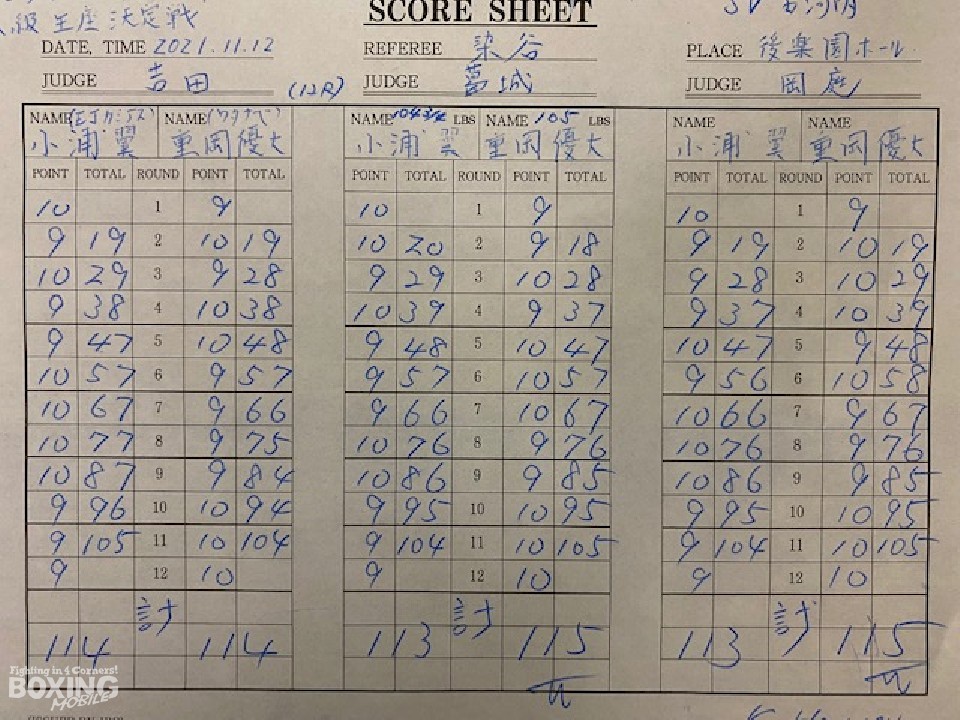 級王座決定戦
SCORE SHEET
DATE, TIME 2021.11.12 REFEREE 染谷 PLACE 後楽園ホール
JUDGE 吉田 (12R) JUDGE 葛城 JUDGE 岡庭
NAME NAME (ワタナベ) NAME 104 3/4 LBS NAME 105 LBS NAME NAME
小浦翼 重岡優大 小浦翼 重岡優大 小浦翼 重岡優大
POINT TOTAL ROUND POINT TOTAL POINT TOTAL ROUND POINT TOTAL POINT TOTAL ROUND POINT TOTAL
10 1 9 10 1 9 10 1 9
9 19 2 10 19 10 20 2 9 18 9 19 2 10 19
10 29 3 9 28 9 29 3 10 28 9 28 3 10 29
9 38 4 10 38 10 39 4 9 37 9 37 4 10 39
9 47 5 10 48 9 48 5 10 47 10 47 5 9 48
10 57 6 9 57 9 57 6 10 57 9 56 6 10 58
10 67 7 9 66 9 66 7 10 67 10 66 7 9 67
10 77 8 9 75 10 76 8 9 76 10 76 8 9 76
10 87 9 9 84 10 86 9 9 85 10 86 9 9 85
9 96 10 10 94 9 95 10 10 95 9 95 10 10 95
9 105 11 10 104 9 104 11 10 105 9 104 11 10 105
9 12 10 9 12 10 9 12 10
計 計 計
114 114 113 115 113 115
Fighting in 4 Corners!
BOXING
MOBILE